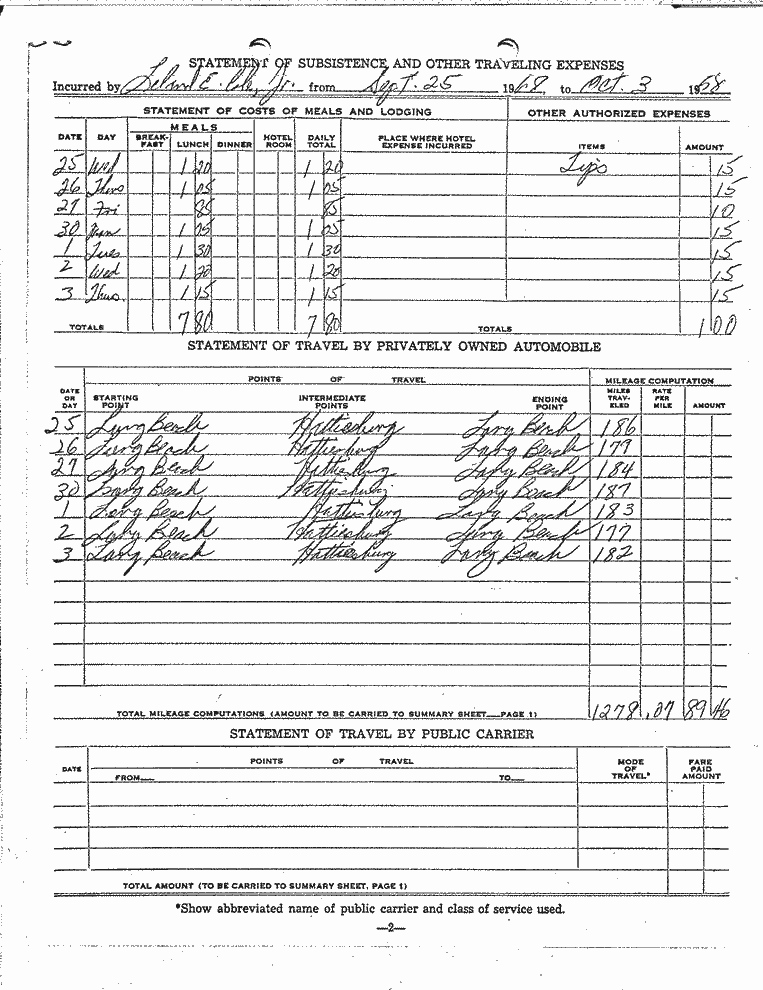 STATEMENT OF SUBSISTENCE AND OTHER TRAVELING EXPENSES
Incurred by Leland E. Cole, Jr. from Sept. 25 1968, to Oct. 3 1968
STATEMENT OF COSTS OF MEALS AND LODGING OTHER AUTHORIZED EXPENSES
DATE DAY MEALS BREAK-FAST LUNCH DINNER HOTEL ROOM DAILY TOTAL PLACE WHERE HOTEL EXPENSE INCURRED ITEMS AMOUNT
25 Wed 1 20 1 20 Tips 15
26 Thurs 1 05 1 05 15
27 Fri 85 85 10
30 Mon 1 05 1 05 15
1 Tues 1 30 1 30 15
2 Wed 1 20 1 20 15
3 Thus. 1 15 1 15 15
TOTALS 7 80 7 80 TOTALS 1 00
STATEMENT OF TRAVEL BY PRIVATELY OWNED AUTOMOBILE
POINTS OF TRAVEL MILEAGE COMPUTATION
DATE OR DAY STARTING POINT INTERMEDIATE POINTS ENDING POINT MILES TRAV-ELED RATE PER MILE AMOUNT
25 Long Beach Hattiesburg Long Beach 186
26 Long Beach Hattiesburg Long Beach 179
27 Long Beach Hattiesburg Long Beach 184
30 Long Beach Hattiesburg Long Beach 187
1 Long Beach Hattiesburg Long Beach 183
2 Long Beach Hattiesburg Long Beach 177
3 Long Beach Hattiesburg Long Beach 182
TOTAL MILEAGE COMPUTATIONS (AMOUNT TO BE CARRIED TO SUMMARY SHEET—PAGE 1) 1278 .07 89 46
STATEMENT OF TRAVEL BY PUBLIC CARRIER
DATE POINTS OF TRAVEL MODE OF TRAVEL* FARE PAID AMOUNT
FROM— TO—
TOTAL AMOUNT (TO BE CARRIED TO SUMMARY SHEET, PAGE 1)
*Show abbreviated name of public carrier and class of service used.
—2—